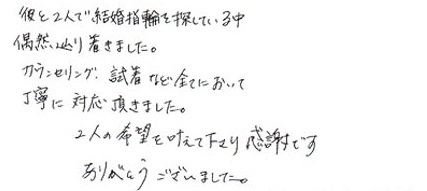 彼と2人で結婚指輪を探している中
偶然、辿り着きました。
カウンセリング、試着など全てにおいて
丁寧に対応頂きました。
2人の希望を叶えて下さり感謝です
ありがとうございました。